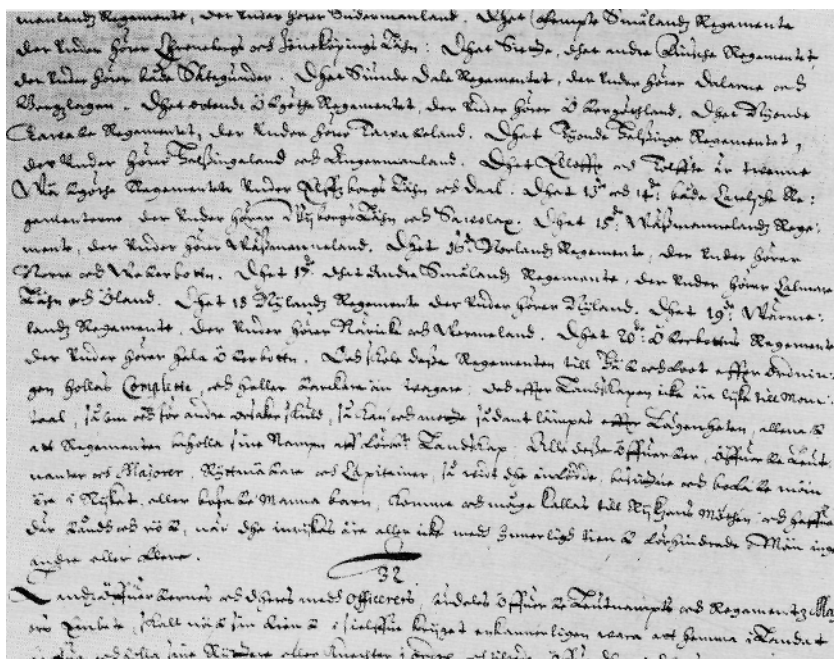 manlandz Regemente, der under hörer Sudermanland. Dhet femte Smålandz Regemente
der under hörer och Jönekiöpings Lähn: Dhet Siette, dhet andre Regementet,
der under hörer både Satagunder. Dhet Siunde Dale Regementet, der under hörer Dalarne och
Bergzlagen. Dhet ottende Östgöthe Regementet, der under hörer Östergöthland. Dhet Nijonde
Tawaste Regementet, der under hörer Tawasteland. Dhet Tijonde Helsinge Regementet,
der under hörer Helsingeland och Ångermanland. Dhet Elloffte och Tolffte är twenne
Wästgöthe Regementete under Elffzborgs Lähn och Daal. Dhet 13de och 14de både Carelsche Re:
gementerne der under hörer Wijborgs Lähn och Sawolax. Dhet 15de Wäßmannelandz Rege:
mente, der under hörer Wäßmanneland. Dhet 16de Norlandz Regemente, der under hörer
Norre och Westerbottn. Dhet 17de dhet Andre Smålandz Regemente, der under hörer Calmare
Lähn och Öland. Dhet 18 Nylandz Regemente der under hörer Nyland. Dhet 19de Wärme:
landz Regemente, der under hörer Näricke och Wermeland. Dhet 20de Österbottns Regemente
der under hörer hela Österbottn. Och skole desse Regementen till Häst och Foot effter Ordnin:
gen hollas Complette, och heller starckare än swagare; och effter Landskapen icke äre lijke till Mann:
taal, så som och för andre orsaker skuld, så kan och medh sådant lämpas effter Lägenheten, allenast
att Regementen beholla sine Nampn aff Landskap. Alle desse Öffuerster, Öffuerste Leut:
nanter och Majorer, Ryttmästare och Capitainer, så widt dhe äre Införde, besuttne och bofaste män
äre i Rijket, eller bofaste Manna barn, komme och måge kallas till Rijkzens Möthen och haffue
där Stånd och röst, när dhe inrijkes äre eller icke medh tienst förhindrade, Män inge
andre eller flere.
32
Landzöffuersternes och dheres medh Officerers, särdeles Öffuerste Leutnampts och Regementz Maj
ors Embete, skall näst sin tienst i sielffue krijget enkannerligen wara att hemma i Landet